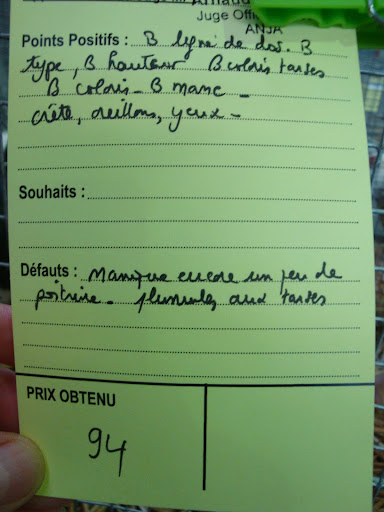 Arnaud
Juge Offi
ANJA
Points Positifs : B ligne de dos. B
type, B hauteur B coloris tarses
B coloris - B masc -
crête, oreillons, yeux -
Souhaits :
Défauts : Manque encore un peu de
poitrine - plumules aux tarses
PRIX OBTENU
94